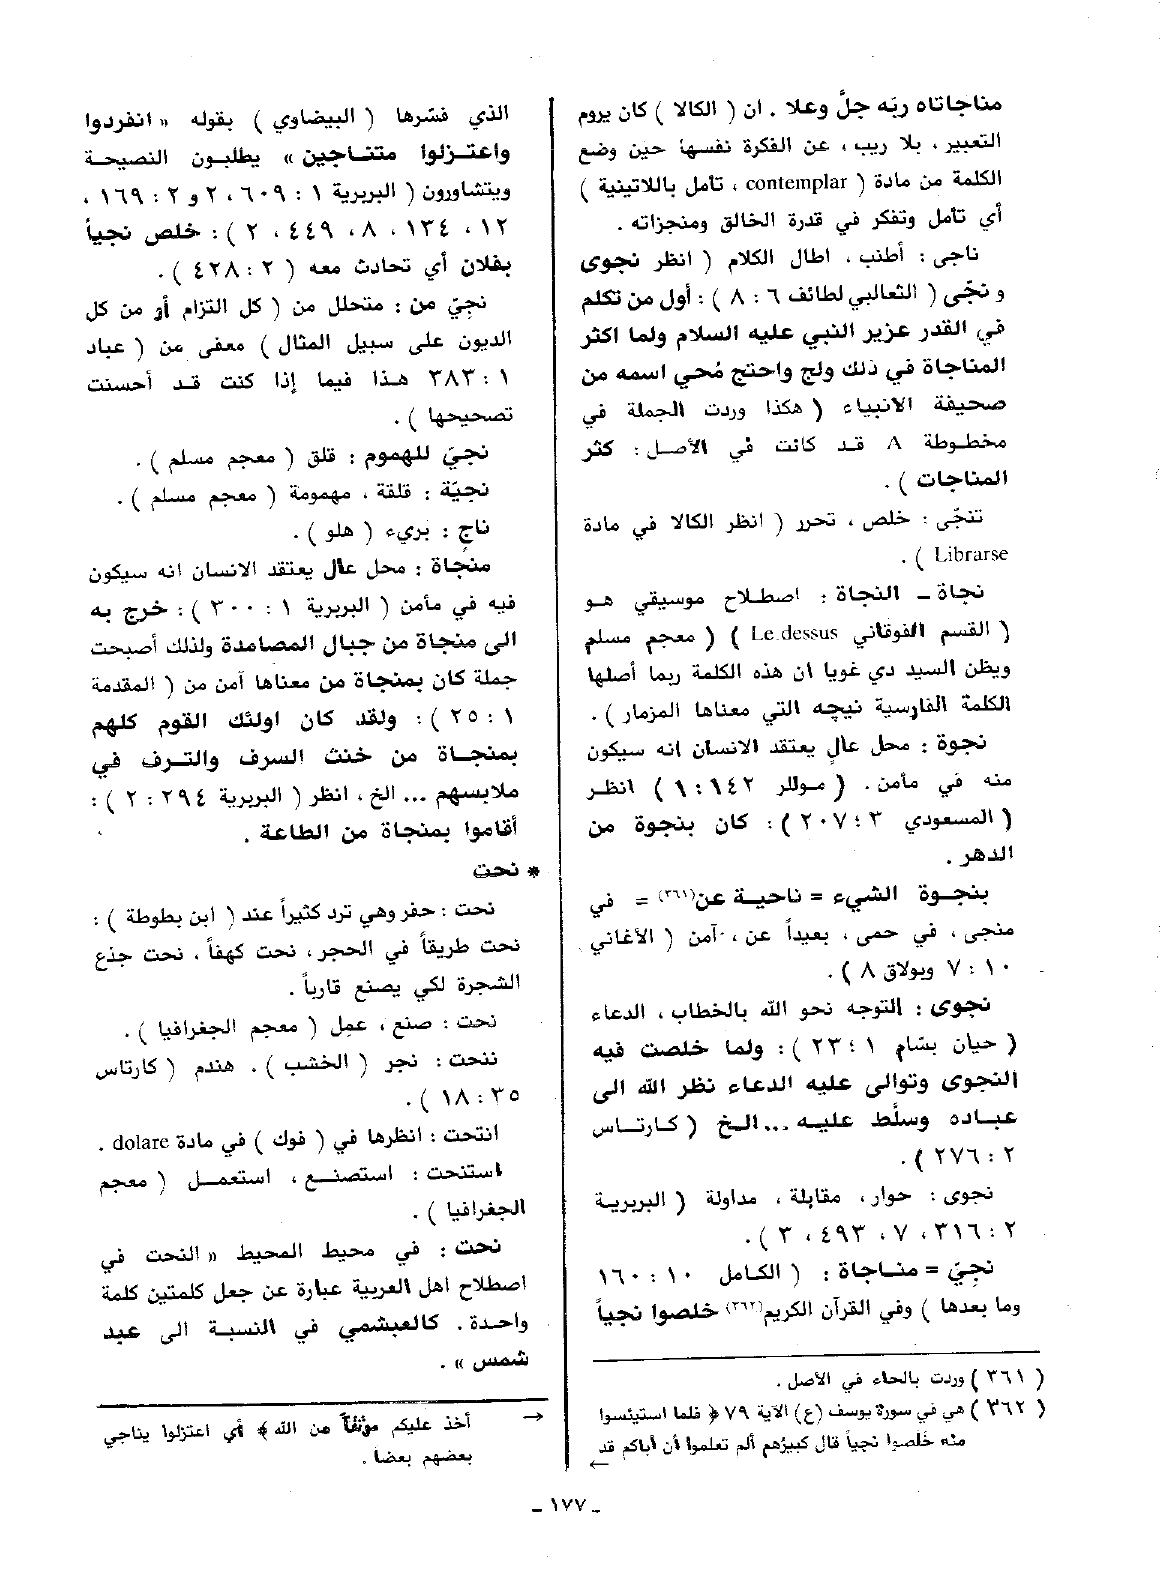 مناجاتاه ربّه جلَّ وعلا . ان ( الكالا ) كان يروم
التعبير ، بلا ريب ، عن الفكرة نفسها حين وضع
الكلمة من مادة ( contemplar ، تأمل باللاتينية )
أي تأمل وتفكر في قدرة الخالق ومنجزاته .
ناجى : أطنب ، اطال الكلام ( انظر نجوى
و نجّى ( الثعالبي لطائف ٦ : ٨ ) : أول من تكلم
في القدر عزير النبي عليه السلام ولما اكثر
المناجاة في ذلك ولج واحتج مُحي اسمه من
صحيفة الانبياء ( هكذا وردت الجملة في
مخطوطة ٨ قد كانت في الأصل : كثر
المناجات ) .
تنجّى : خلص ، تحرر ( انظر الكالا في مادة
Librarse ) .
نجاة ـ النجاة : اصطلاح موسيقي هو
( القسم الفوقاني Le.dessus ) ( معجم مسلم
ويظن السيد دي غويا ان هذه الكلمة ربما أصلها
الكلمة الفارسية نيچه التي معناها المزمار ) .
نجوة : محل عالٍ يعتقد الانسان انه سيكون
منه في مأمن . ( موللر ١٤٢ : ١ ) انظر
( المسعودي ٣ : ٢٠٧ ) : كان بنجوة من
الدهر .
بنجوة الشيء = ناحية عن(٣٦١) = في
منجى ، في حمى ، بعيداً عن ، آمن ( الأغاني
١٠ : ٧ وبولاق ٨ ) .
نجوى : التوجه نحو الله بالخطاب ، الدعاء
( حيان بسّام ١ : ٢٣ ) : ولما خلصت فيه
النجوى وتوالى عليه الدعاء نظر الله الى
عباده وسلّط عليه ... الخ ( كارتاس
٢ : ٢٧٦ ) .
نجوى : حوار ، مقابلة ، مداولة ( البربرية
٢ : ٣١٦ ، ٧ ، ٤٩٣ ، ٣ ) .
نجيّ = مناجاة : ( الكامل ١٠ : ١٦٠
وما بعدها ) وفي القرآن الكريم(٣٦٢) خلصوا نجياً
( ٣٦١ ) وردت بالحاء في الأصل .
( ٣٦٢ ) هي في سورة يوسف (ع) الآية ٧٩ ﴿ فلما استيئسوا
منه خلصوا نجياً قال كبيرهم ألم تعلموا أن أباكم قد ←
الذي فسّرها ( البيضاوي ) بقوله « انفردوا
واعتزلوا متناجين » يطلبون النصيحة
ويتشاورون ( البربرية ١ : ٦٠٩ ، ٢ و ٢ : ١٦٩ ،
١٢ ، ١٣٤ ، ٨ ، ٤٤٩ ، ٢ ) : خلص نجياً
بفلان أي تحادث معه ( ٢ : ٤٢٨ ) .
نجيّ من : متحلل من ( كل التزام أو من كل
الديون على سبيل المثال ) معفى من ( عباد
١ : ٣٨٣ هذا فيما إذا كنت قد أحسنت
تصحيحها ) .
نجيّ للهموم : قلق ( معجم مسلم ) .
نجيّة : قلقة ، مهمومة ( معجم مسلم ) .
ناجٍ : بريء ( هلو ) .
منجاة : محل عالٍ يعتقد الانسان انه سيكون
فيه في مأمن ( البربرية ١ : ٣٠٠ ) : خرج به
الى منجاة من جبال المصامدة ولذلك أصبحت
جملة كان بمنجاة من معناها آمن من ( المقدمة
١ : ٢٥ ) : ولقد كان اولئك القوم كلهم
بمنجاة من خنث السرف والترف في
ملابسهم ... الخ ، انظر ( البربرية ٢٩٤ : ٢ ) :
أقاموا بمنجاة من الطاعة .
* نحت
نحت : حفر وهي ترد كثيراً عند ( ابن بطوطة ) :
نحت طريقاً في الحجر ، نحت كهفاً ، نحت جذع
الشجرة لكي يصنع قارباً .
نحت : صنع ، عمل ( معجم الجغرافيا ) .
ننحت : نجر ( الخشب ) . هندم ( كارتاس
٣٥ : ١٨ ) .
انتحت : انظرها في ( فوك ) في مادة dolare .
استنحت : استصنع ، استعمل ( معجم
الجغرافيا ) .
نحت : في محيط المحيط « النحت في
اصطلاح اهل العربية عبارة عن جعل كلمتين كلمة
واحدة . كالعبشمي في النسبة الى عبد
شمس » .
→ أخذ عليكم موثقاً من الله ﴾ أي اعتزلوا يناجي
بعضهم بعضا .
ـ ١٧٧ ـ